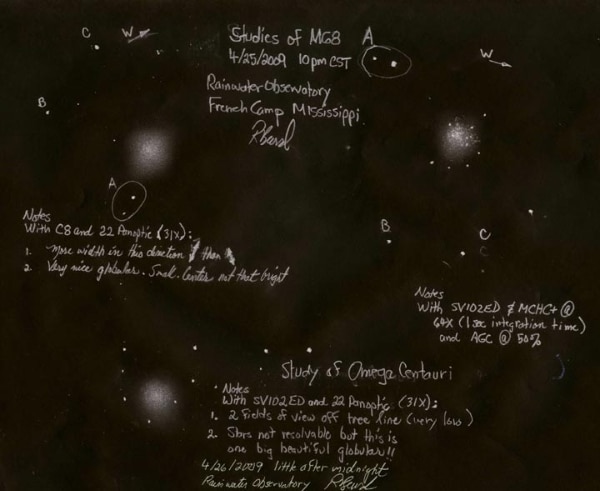 Studies of M68
4/25/2009 10pm CST
Rainwater Observatory
French Camp Mississippi
C
W
A
W
B
A
Notes
With C8 and 22 Panoptic (31X):
1. More width in this direction than
2. Very nice globular. Small. Center not that bright
B
C
Notes
With SV102ED & MCHC+ @
64X (1 sec integration time)
and AGC @ 50%
Study of Omega Centauri
Notes
With SV102ED and 22 Panoptic (31X):
1. 2 Fields of view off tree line (very low)
2. Stars not resolvable but this is
one big beautiful globular!!
4/26/2009 little after midnight
Rainwater Observatory